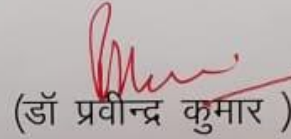 (डॉ प्रवीन्द्र कुमार )